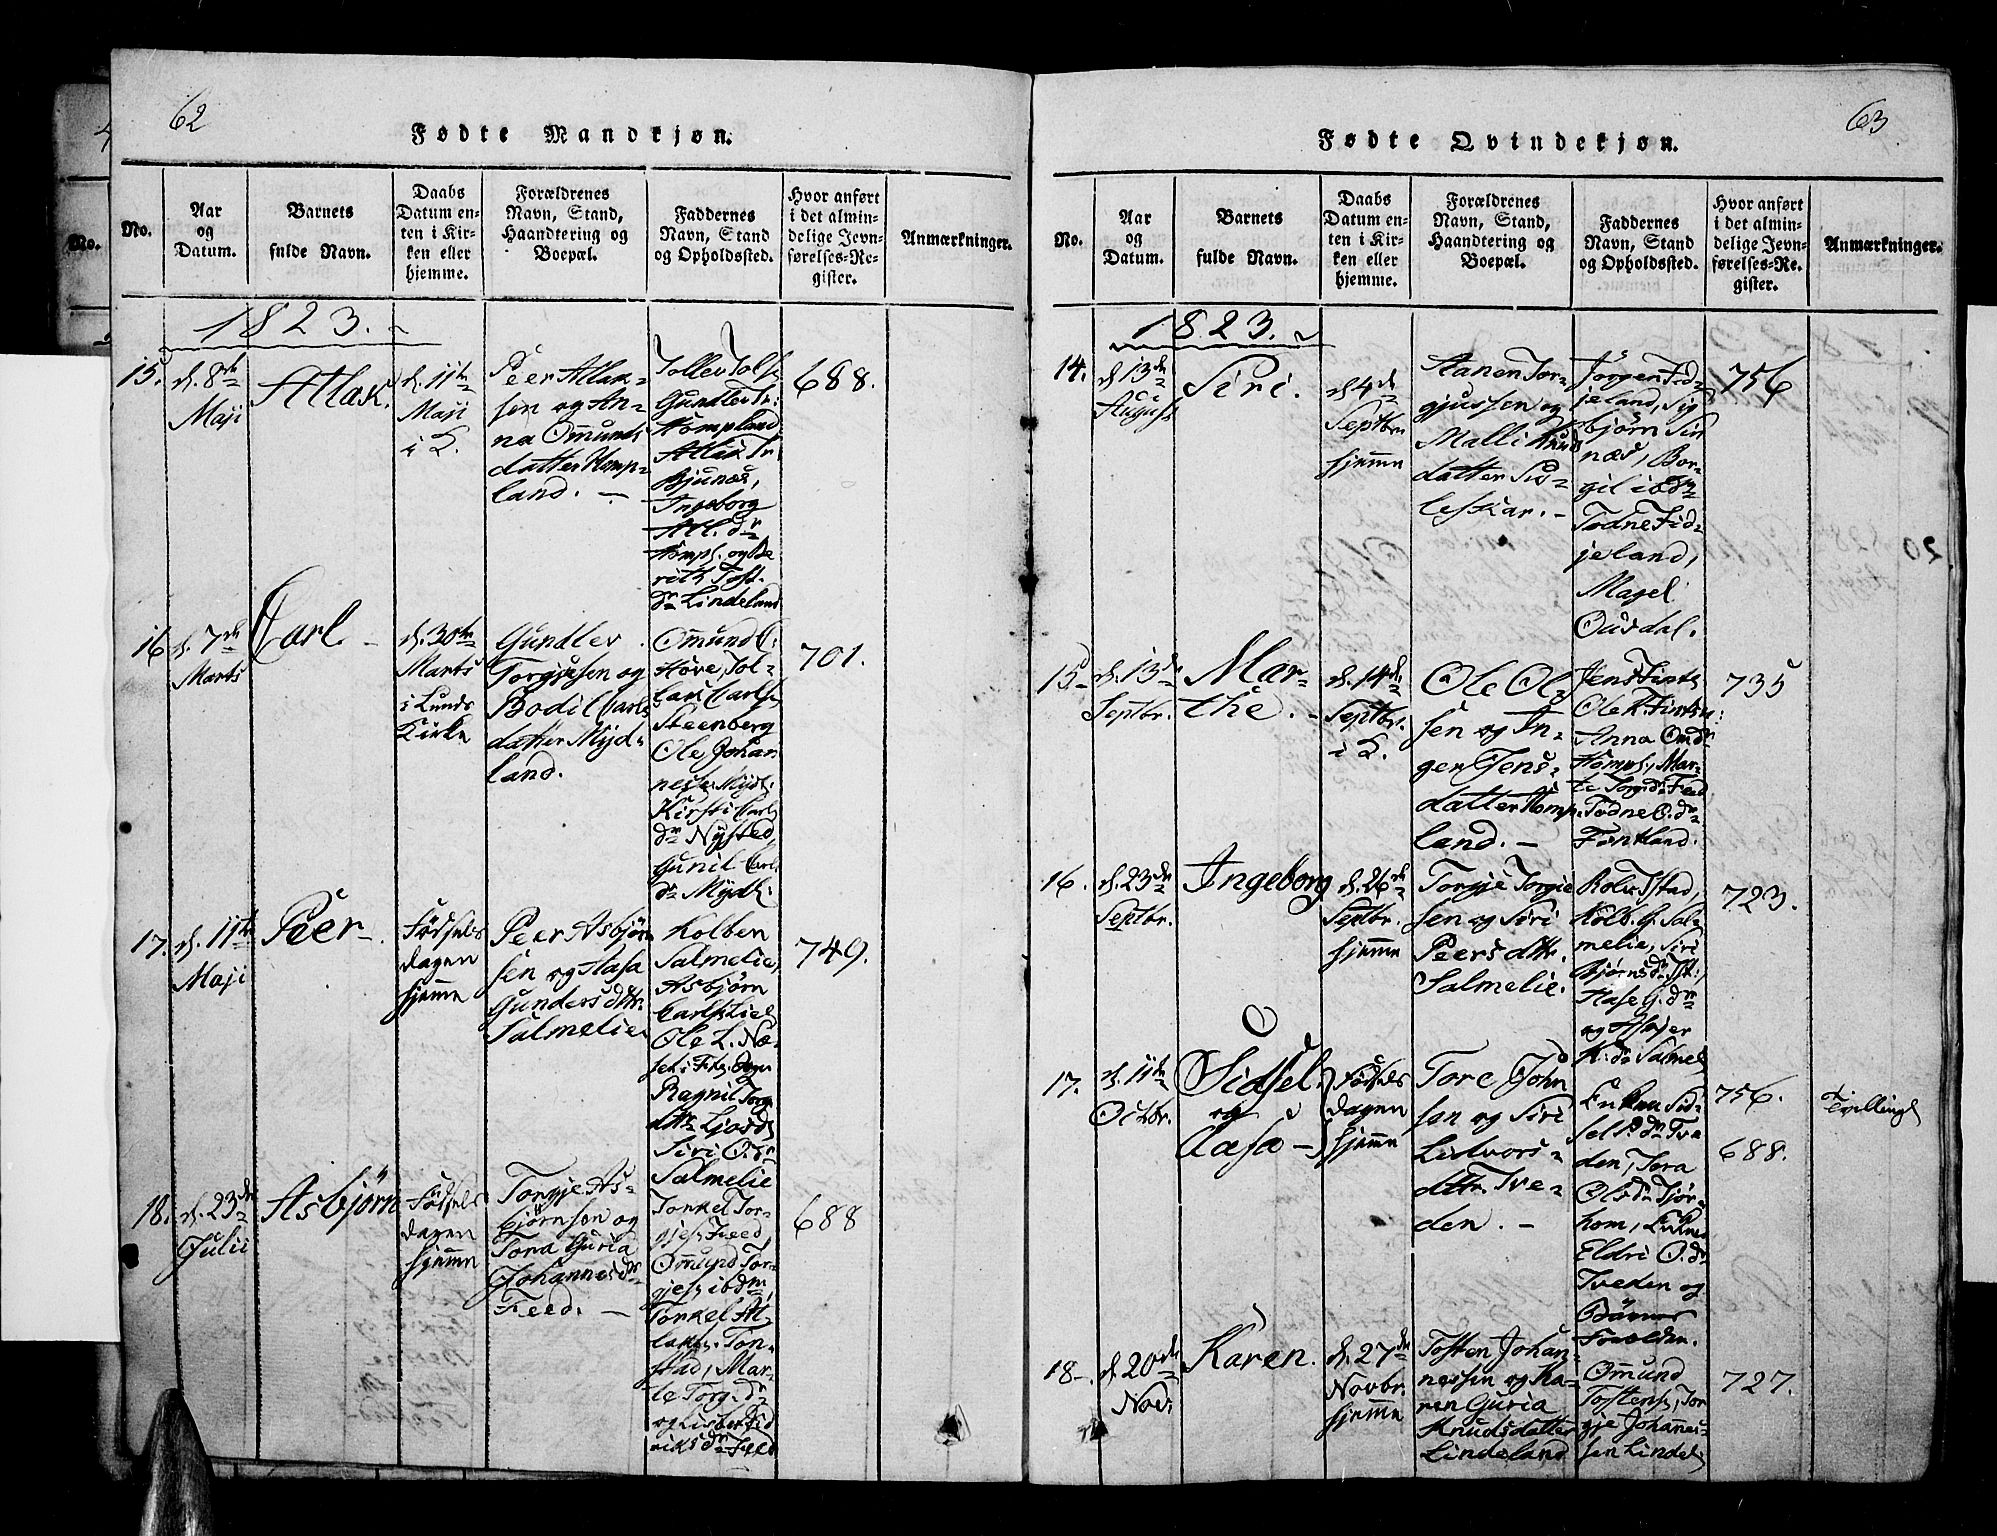 62
Fødte Mandkjøn.
No.
Aar
og
Datum.
Barnets
fulde Navn.
Daabs
Datum en-
ten i Kir-
ken eller
hjemme.
Forældrenes
Navn, Stand,
Haandtering og
Boepæl.
Faddernes
Navn, Stand
og Opholdssted.
Hvor anført
i det almin-
delige Jevn-
førelses-Re-
gister.
Anmærkninger.
1823.
15.
d. 8de
Maji
Atlak.
d. 11te
Maji
i K.
Peer Atlak-
sen og An-
na Omunds
datter Homp-
land. -
Tollev Tols
Gundlev Tr:
Hompland
Atlak Tr.
Bjunes,
Ingeborg
Atl. dr
Hompl. og Be
rith Tost.
dr Lindeland
688.
16
d. 7de
Marts
Carl -
d. 30te
Marts
i Lunds
Kirke
Gundlev
Torgjusen og
Bodil Carls
datter Mijd-
land.
Omund C.
Hove, Tol-
Carl Carls.
Steenberg
Ole Johan
nesse Mijdl.
Kirsti Carls
dr Nysted
Gunil Carl
dr Mijdl.
701.
17.
d. 11te
Maji
Peer -
Födsels
dagen
hjemme
Peer Asbjörn
sen og Aasa
Gundersdttr.
Salmelie
Kolben
Salmelie,
Asbjörn
Carls. Lie
Ole L. Næ-
Ragnil Torg
dttr Ljosd
Siri O. dr
Salmelie
749.
18.
d. 23de
Julii
Asbjörn
Födsels
dagen
hjemme
Torgje As-
björnsen og
Tona Guria
Johannesdr
Feed. -
Tonkel Tor-
gjes. Feed,
Omund Tor-
gjes. ibdm,
Tonkel At-
laks. Ton-
stad, Mar-
te Torg. dr
og Lisbet Fid
riksdr Feed
688
63
Fødte Qvindekjøn.
No.
Aar
og
Datum.
Barnets
fulde Navn.
Daabs
Datum en-
ten i Kir-
ken eller
hjemme.
Forældrenes
Navn, Stand,
Haandtering og
Boepæl.
Faddernes
Navn, Stand
og Opholdssted.
Hvor anført
i det almin-
delige Jevn-
førelses-Re-
gister.
Anmærkninger.
1823.
14.
d 13de
August
Siri.
d 4de
Septbr.
hjemme
Aanen Tor-
gjussen og
Malli Knud
datter Sid-
leskar. -
Jörgen Fid-
jeland, Sig
bjørn Sin
næs, Bor-
gil ibdm
Todne Fid-
jeland,
Magel
Ousdal.
756
15-
d. 13de
Septbr.
Mar-
the. -
d. 14de
Septbr.
i K.
Ole Ol-
sen og In-
ger Jens-
datter Homp-
land. -
Jens Fints.
Ole K. Fintsn:
Anna Omdr
Hompl., Mar-
te Torg. dr Feed
Todne O. dr
Fintland.
735
16.
d. 23de
Septbr.
Ingeborg
d. 26de
Septbr.
hjemme
Torgje Torgje
sen og Siri
Peersdttr.
Salmelie.
Kolb. G. Sal-
melie, Siri
Bjørnsdr Tst:
Aase G. dr
og Asbjør
K: dr Salmel
723.
17.
d. 11te
Octbr.
Sidsel.
og
Aasa -
Födsels
dagen
hjemme
Tore John
sen og Siri
Ledvors-
dttr. Tve-
den. -
sel P. dr Tve
den, Tora
Olsdr Tjör-
hom,
Eldri O. dr
Tveden og
Börnes
Forældre.
756.
688.
Tvillinge
18-
d 20de
Nov.
Karen.
d. 27de
Novbr.
hjemme
Tosten Johan-
nessen og Ka-
ren Guria
Knudsdatter
Lindeland
Omund
Tostens., Tor
gje Johannes-
sen Lindel.
727.